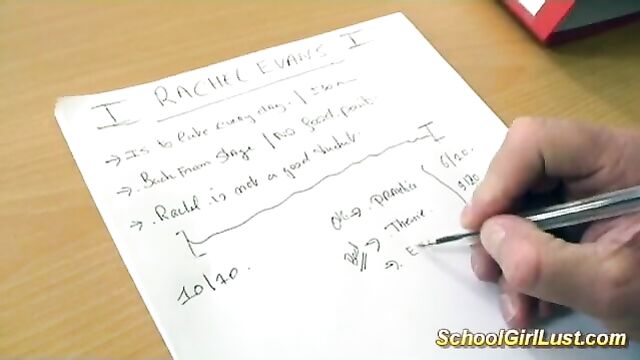 I RACHEL EVANS I
→ Is to late every day. /
→ Back From Stage / No Good point.
→ Rachel is not a good student.
→ Practice 6/20.
Bad → Theme. 9/20
→ E
10/20.
SchoolGirlLust.com